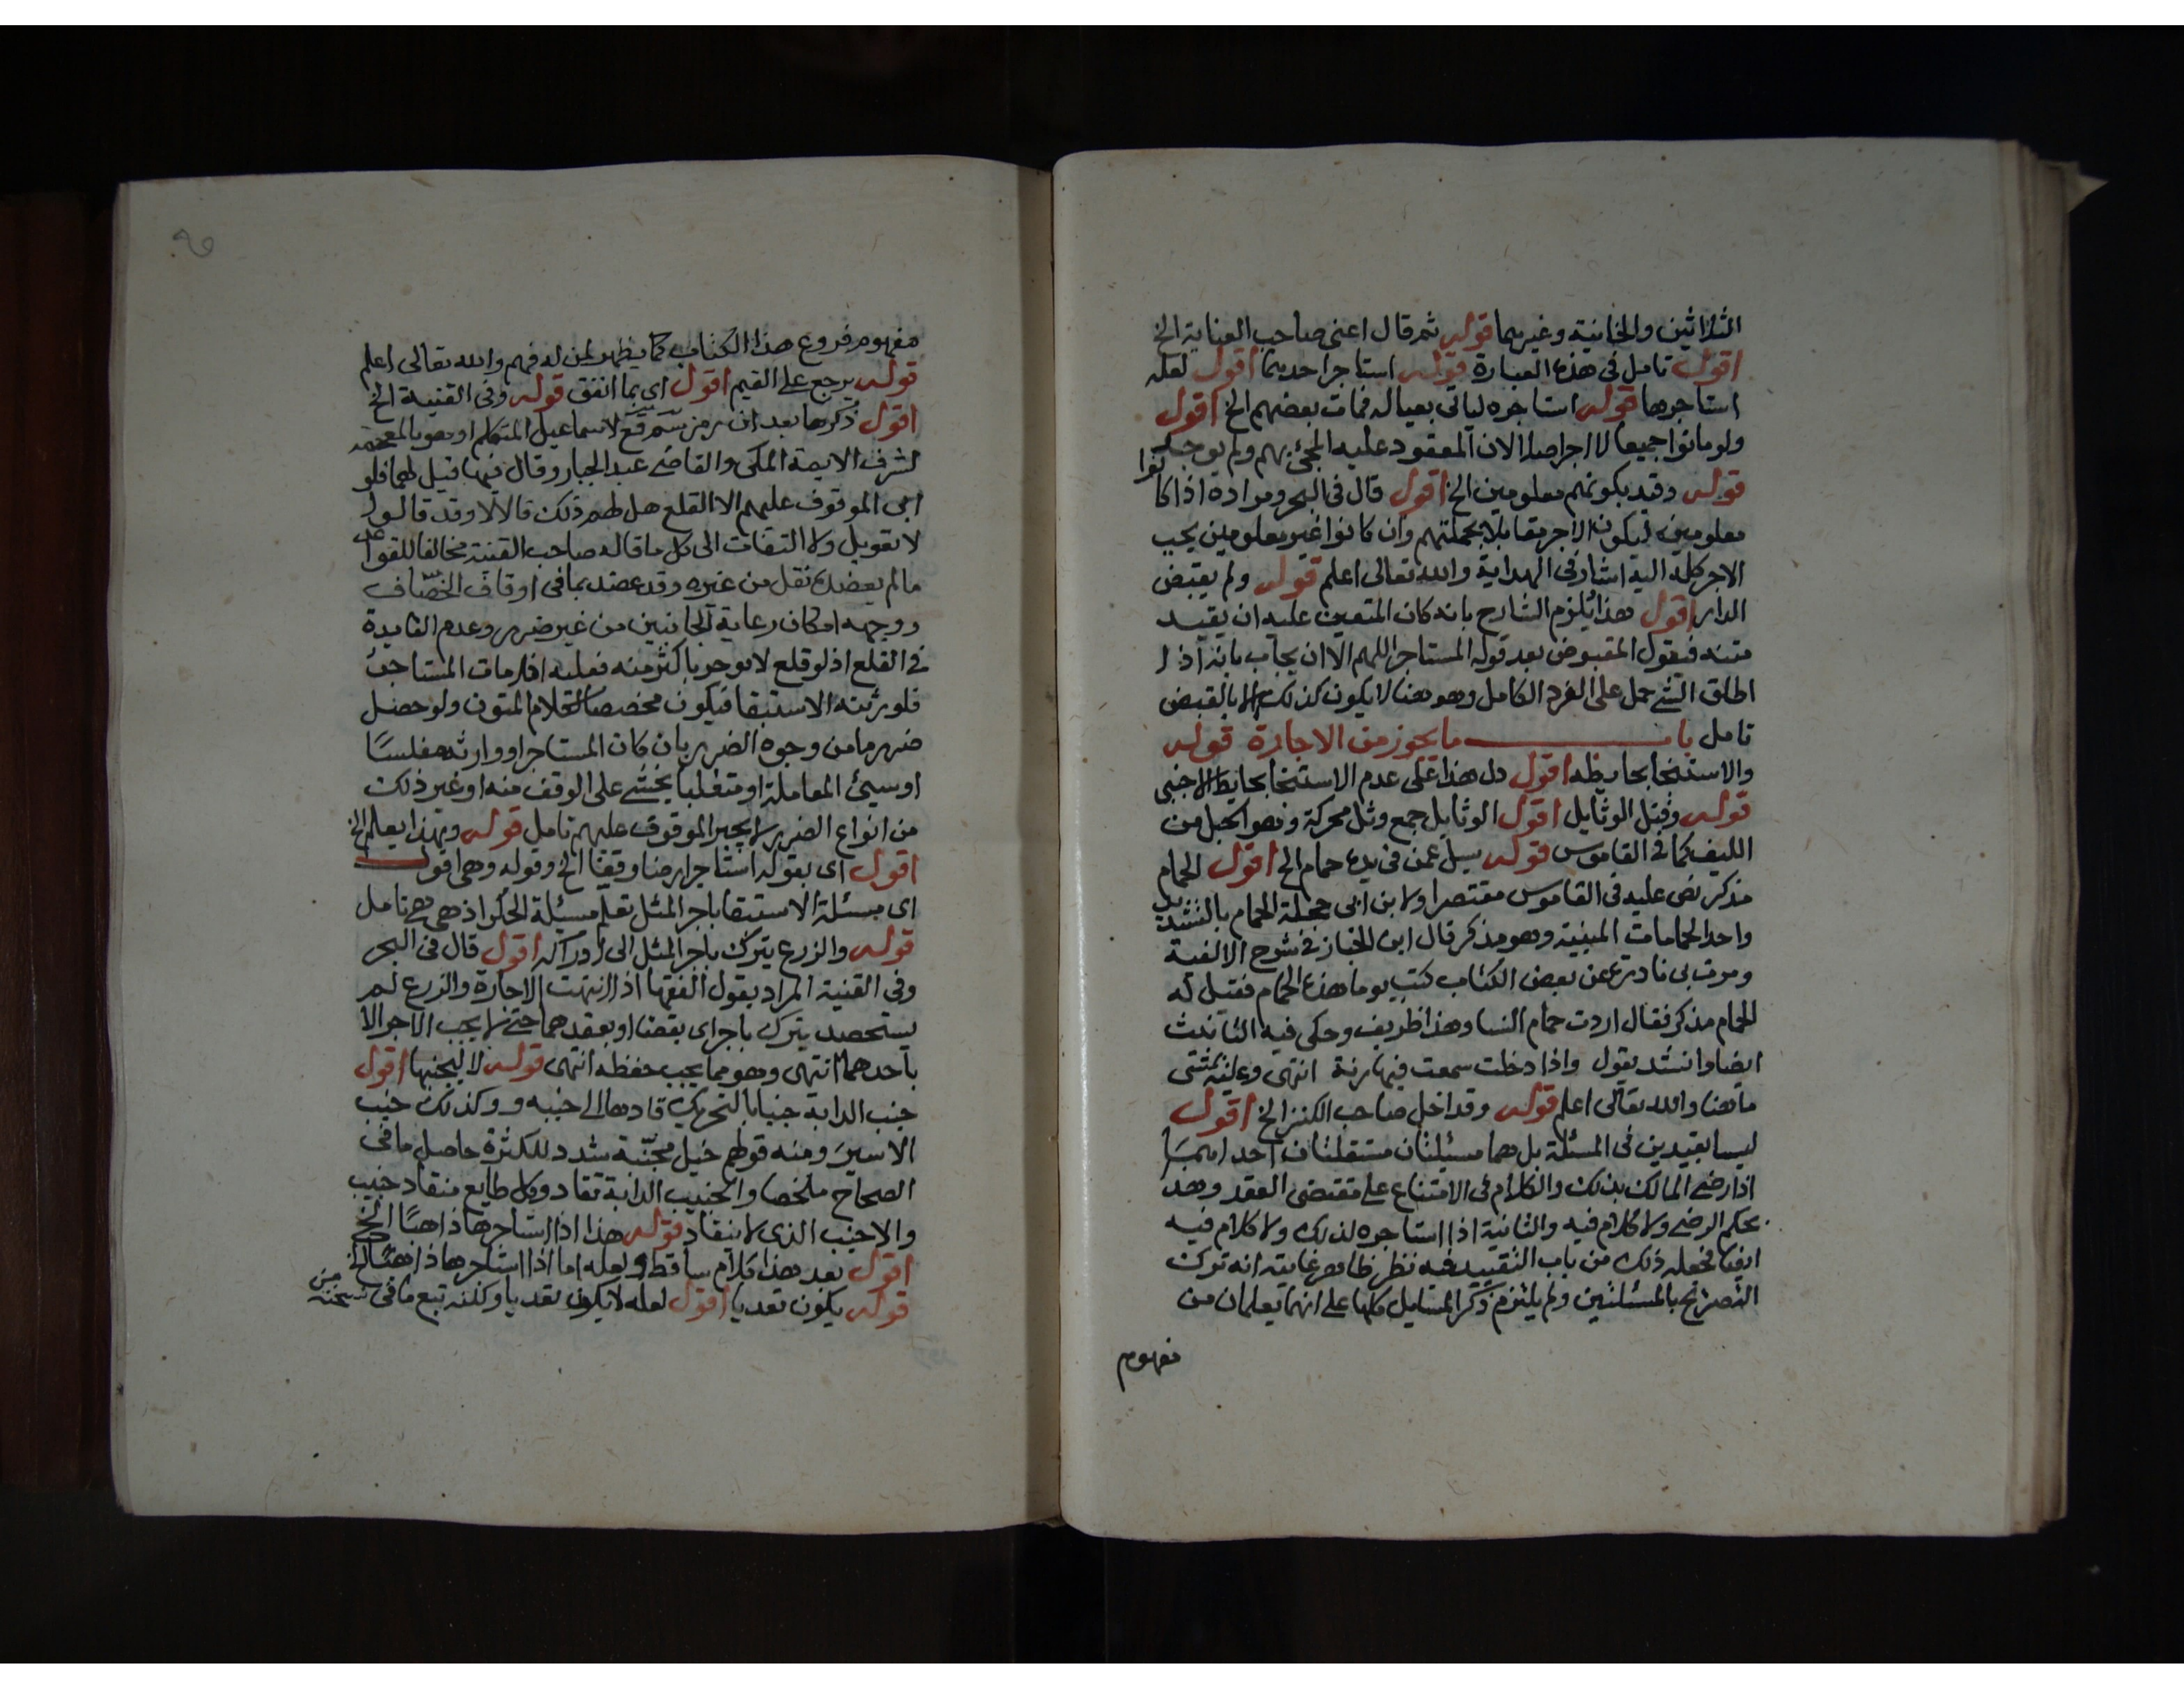 الثلاثين والخانية وغيرهما قوله ثم قال اعني صاحب العناية الخ
اقول تامل في هذه العبارة قوله استاجر احدهما اقول لعله
استاجرها قوله استاجره لياتي بعياله فمات بعضهم الخ اقول
ولو ماتوا جميعا لا اجر اصلا لان المعقود عليه المجئ بهم ولم يوجد
قوله وقيد بكونهم معلومين الخ اقول قال في البحر ومراده اذا كانوا
معلومين ليكون الاجر مقابلا بجملتهم وان كانوا غير معلومين يجب
الاجر كله اليه اشار في الهداية والله تعالى اعلم قوله ولم يقبض
الدار اقول هذا يلزم الشارح بانه كان المتعين عليه ان يقيد
متنه فيقول المقبوض بعد قوله المستاجر اللهم الا ان يجاب بانه اذا
اطلق الشي حمل على الفرد الكامل وهو هنا لا يكون كذلك الا بالقبض
تامل باب ما يجوز من الاجارة قوله
والاستنجا بحايطه اقول دل هذا على عدم الاستنجا بحايط الاجنبي
قوله وفتل الوثايل اقول الوثايل جمع وثل محركة وهو الحبل من
الليف كما في القاموس قوله سيل عمن في يده حمام الخ اقول الحمام
مذكر نص عليه في القاموس مقتصرا ولابن ابي حجلة الحمام بالتشديد
واحد الحمامات المبنية وهو مذكر قال ابن الخباز في شرح الالفية
ومرت بي نادرة عن بعض الكتاب كتب يوما هذه الحمام فقيل له
الحمام مذكر فقال اردت حمام النسا وهذا ظريف وحكي فيه التانيث
ايضا وانشد يقول واذا دخلت سمعت فيها رنة انتهى وعليه يتمشى
ما هنا والله تعالى اعلم قوله وقد اخل صاحب الكنز الخ اقول
ليسا بقيدين في المسئلة بل هما مسيلتان مستقلتان احداهما
اذا رضي المالك بذلك والكلام في الامتناع على مقتضى العقد وهذا
بحكم الرضي ولا كلام فيه والثانية اذا استاجره لذلك ولا كلام فيه
ايضا فجعله ذلك من باب التقييد فيه نظر ظاهر غايته انه ترك
التصريح بالمسئلتين ولم يلتزم ذكر المسايل كلها على انهما يعلمان من
مفهوم
مفهوم فروع هذا الكتاب كما يظهر لمن له فهم والله تعالى اعلم
قوله يرجع على القيم اقول اي بما انفق قوله وفي القنية الخ
اقول ذكرها بعد ان رمز لاسماعيل المتكلم اوهو بالمعجمة
لشرف الايمة المكي والقاضي عبد الجبار وقال فيها قيل لهما فلو
ابى الموقوف عليهم الا القلع هل لهم ذلك قالا لا وقد قالوا
لا تعويل ولا التفات الى كل ما قاله صاحب القنية مخالفا للقواعد
ما لم يعضده نقل من غيره وقد عضد بما في اوقاف الخصاف
ووجهه امكان رعاية الجانبين من غير ضرر وعدم الفايدة
في القلع اذ لو قلع لا يوجر باكثر منه فعليه اذا مات المستاجر
فلورثته الاستبقا فيكون مخصصا لكلام المتون ولو حصل
ضرر ما من وجوه الضرر بان كان المستاجر او وارثه مفلسا
او سيئ المعاملة او متغلبا يخشى على الوقف منه او غير ذلك
من انواع الضرر لا يجبر الموقوف عليهم تامل قوله وبهذا يعلم الخ
اقول اي بقوله استاجر ارضا وقفا الخ وقوله وهي اقول
اي مسئلة الاستبقا باجر المثل تعلم مسيلة الحكر اذ هي هي تامل
قوله والزرع يترك باجر المثل الى ادراكه اقول قال في البحر
وفي القنية المراد بقول الفقها اذا انتهت الاجارة والزرع لم
يستحصد يترك باجر اي بقضا او بعقدهما حتى لا يجب الاجر الا
باحدهما انتهى وهو مما يجب حفظه انتهى قوله لا ليجنبها اقول
جنب الدابة جنبا بالتحريك قادها الى جنبه وكذلك جنب
الاسير ومنه قولهم خيل مجنبة شدد للكثرة حاصل ما في
الصحاح ملخصا والجنيب الدابة تقاد وكل طايع منقاد جنيب
والاجنب الذي لا ينقاد قوله هذا اذا استاجرها ذاهبا الخ
اقول بعد هذا كلام ساقط ولعله اما اذا استاجرها ذاهبا الخ
قوله يكون تعديا اقول لعله لا يكون تعديا ولكنه تبع ما في نسخته من